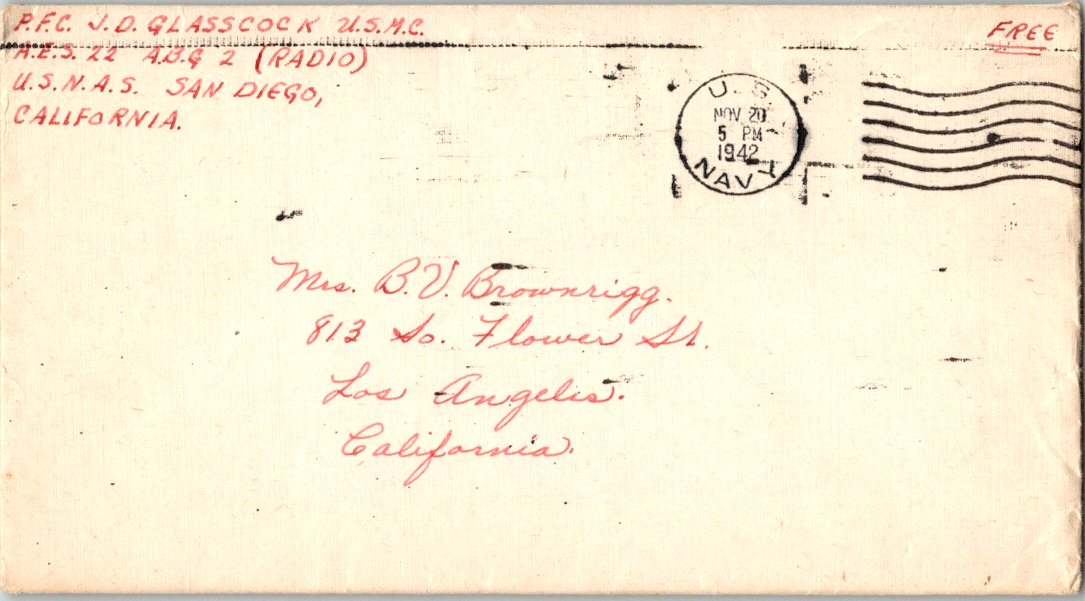 P.F.C. J.D. GLASSCOCK U.S.M.C.
A.E.S. 22 A.B.G 2 (RADIO)
U.S.N.A.S. SAN DIEGO,
CALIFORNIA.
FREE
U.S.
NOV 20
5 PM
1942
NAVY
Mrs. B.V. Brownrigg.
813 So. Flower St.
Los Angeles.
California.